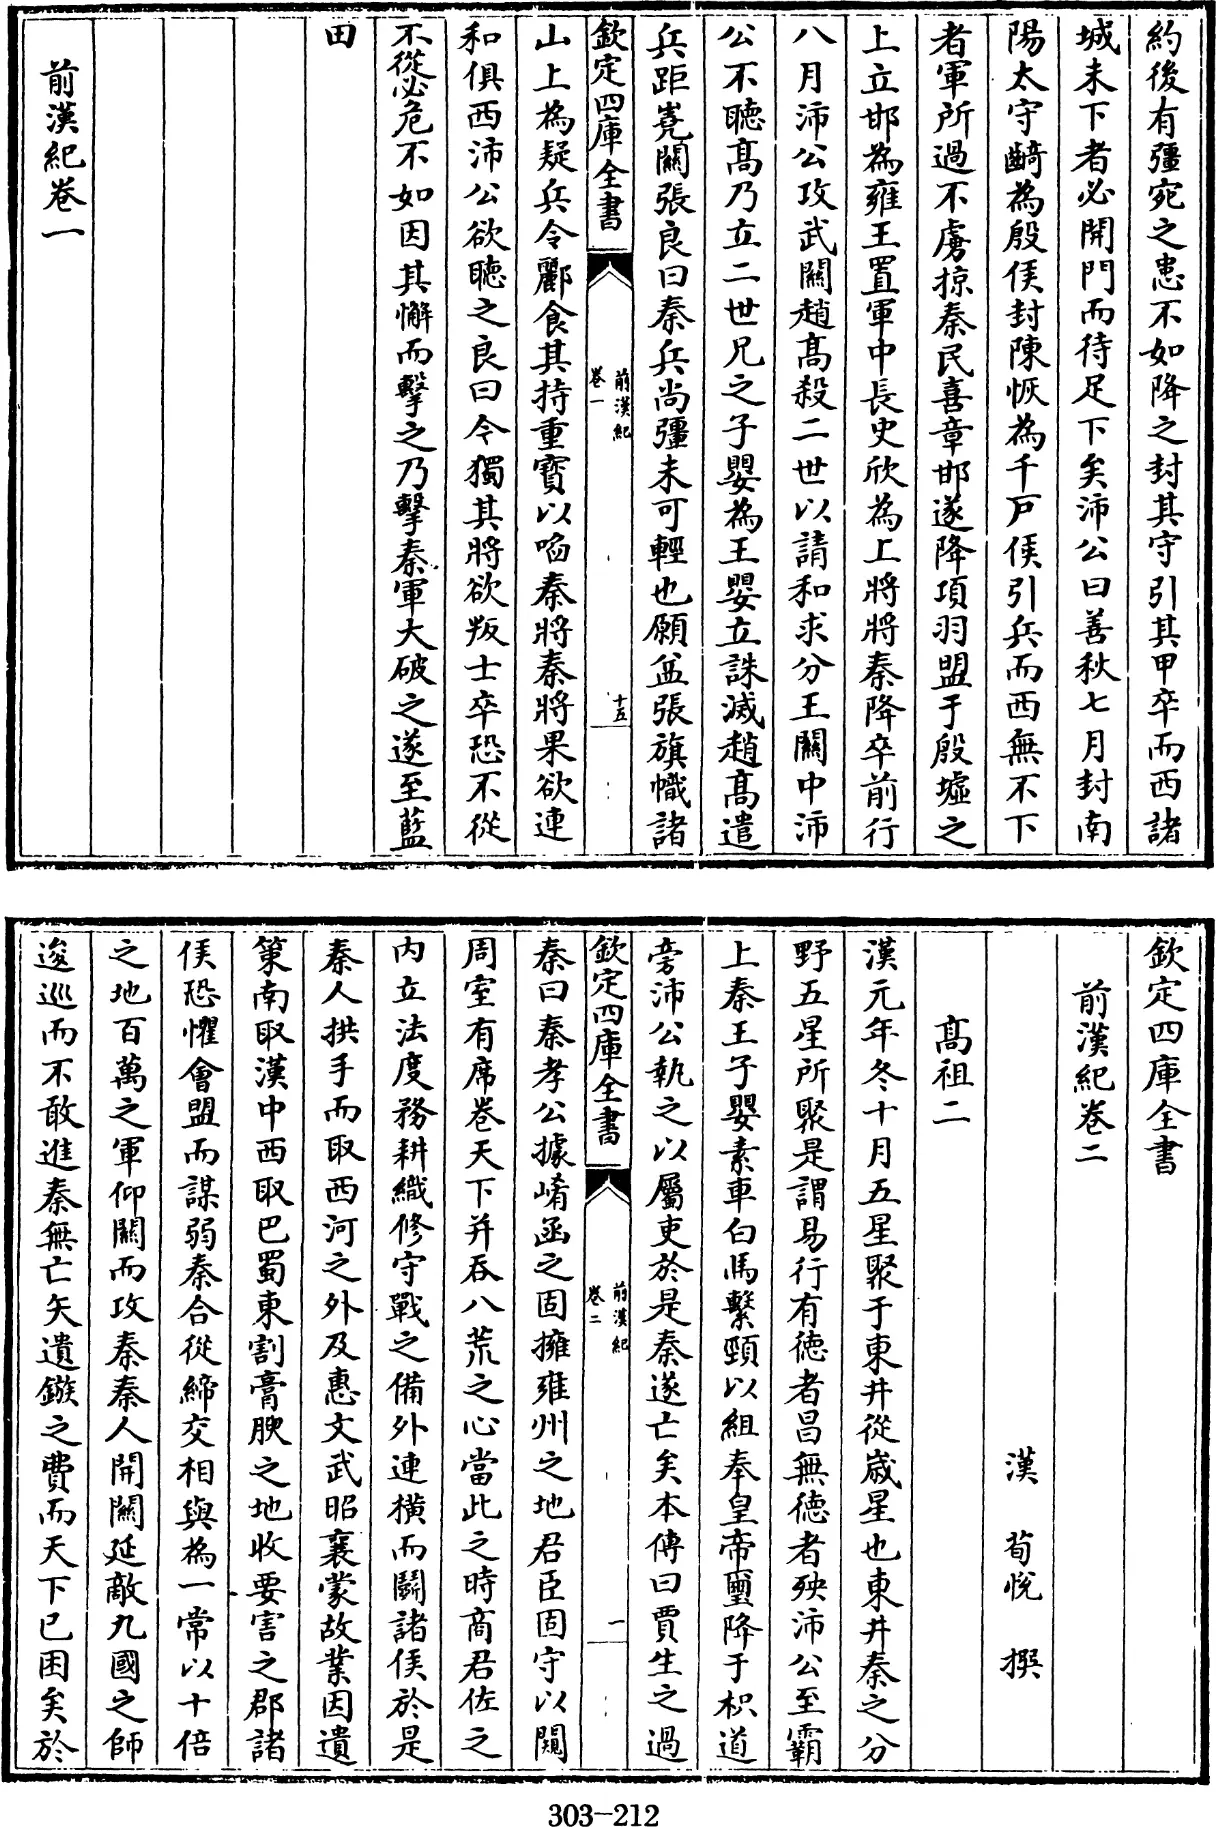 約後有彊宛之患不如降之封其守引其甲卒而西諸
城未下者必開門而待足下矣沛公曰善秋七月封南
陽太守齮為殷侯封陳恢為千戶侯引兵而西無不下
者軍所過不虜掠秦民喜章邯遂降項羽盟于殷墟之
上立邯為雍王置軍中長史欣為上將將秦降卒前行
八月沛公攻武關趙髙殺二世以請和求分王關中沛
公不聴髙乃立二世兄之子嬰為王嬰立誅滅趙髙遣
兵距嶤關張良曰秦兵尚彊未可輕也願益張旗幟諸
欽定四庫全書
前漢紀
卷一
十五
山上為疑兵令酈食其持重寶以啗秦將秦將果欲連
和俱西沛公欲聴之良曰今獨其將欲叛士卒恐不從
不從必危不如因其懈而擊之乃擊秦軍大破之遂至藍
田
前漢紀卷一
欽定四庫全書
前漢紀卷二
漢 荀悅 撰
髙祖二
漢元年冬十月五星聚于東井從歲星也東井秦之分
野五星所聚是謂易行有徳者昌無徳者殃沛公至霸
上秦王子嬰素車白馬繫頸以組奉皇帝璽降于枳道
旁沛公執之以屬吏於是秦遂亡矣本傳曰賈生之過
欽定四庫全書
前漢紀
卷二
一
秦曰秦孝公據崤函之固擁雍州之地君臣固守以闚
周室有席卷天下并吞八荒之心當此之時商君佐之
内立法度務耕織修守戰之備外連橫而鬬諸侯於是
秦人拱手而取西河之外及惠文武昭襄蒙故業因遺
策南取漢中西取巴蜀東割膏腴之地收要害之郡諸
侯恐懼會盟而謀弱秦合從締交相與為一常以十倍
之地百萬之軍仰關而攻秦秦人開關延敵九國之師
逡巡而不敢進秦無亡矢遺鏃之費而天下已困矣於
303-212